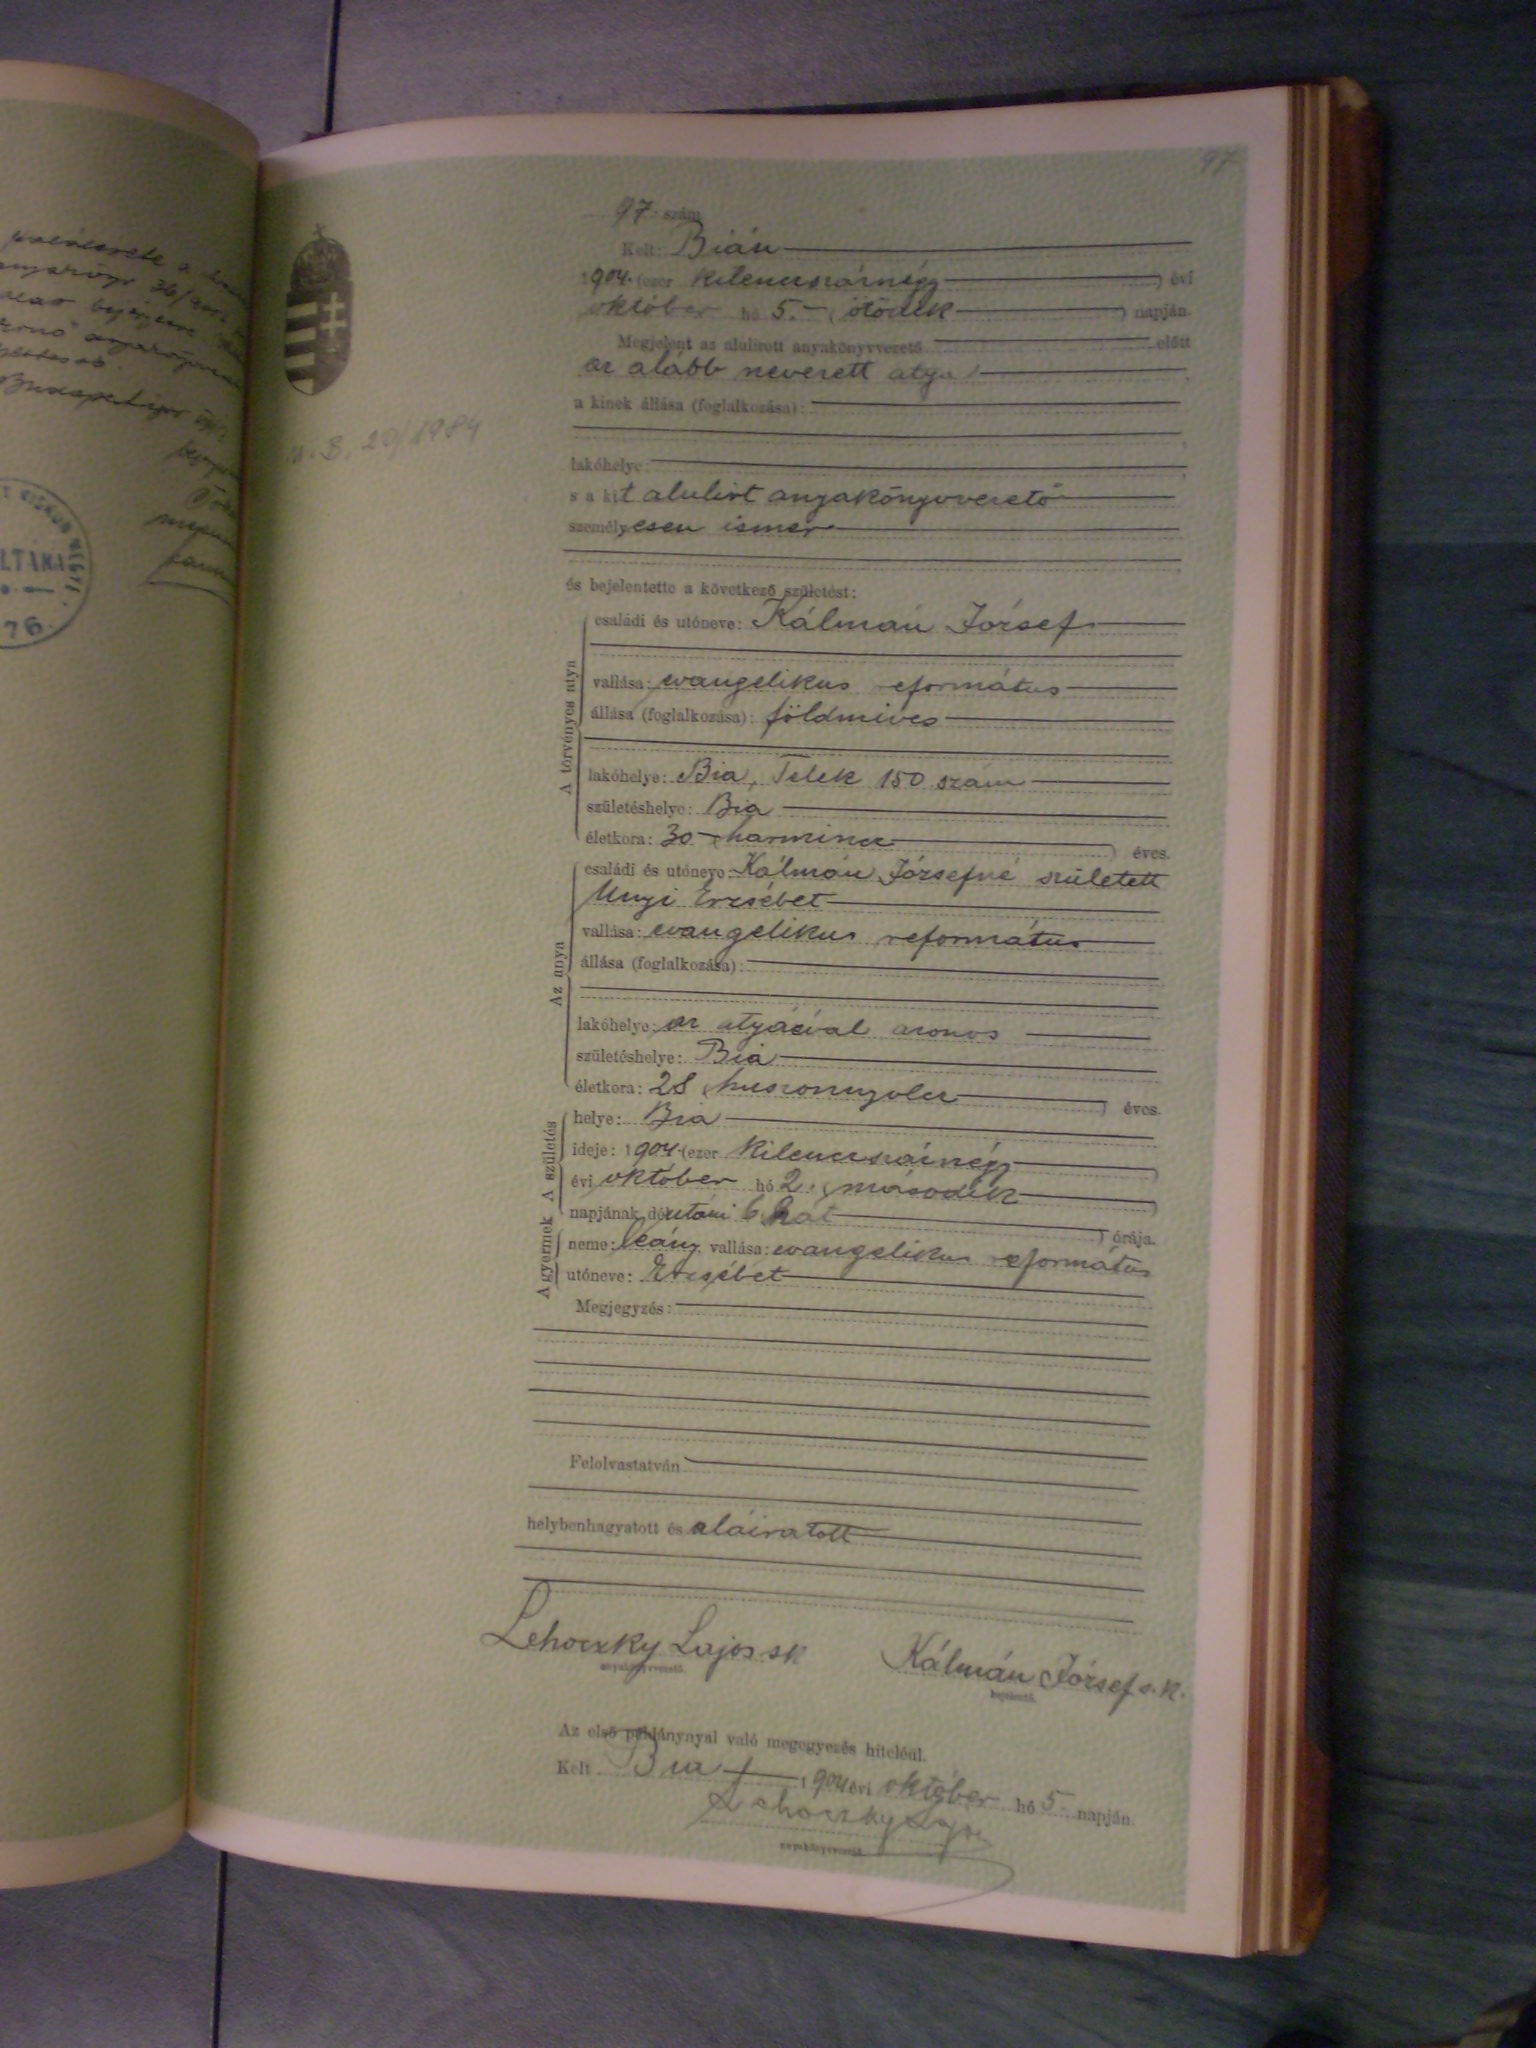 97
97. szám
Kelt: Bián
1904. (ezer kilencszáznégy) évi
október hó 5. (ötödik) napján.
Megjelent az alulirott anyakönyvvezető előtt
az alább nevezett atya
a kinek állása (foglalkozása):
lakóhelye:
s a kit alulirt anyakönyvvezető
személyesen ismer
és bejelentette a következő születést:
A törvényes atya
családi és utóneve: Kálmán József
vallása: evangelikus református
állása (foglalkozása): földmives
lakóhelye: Bia, Telek 150 szám
születéshelye: Bia
életkora: 30 (harmincz) éves.
Az anya
családi és utóneve: Kálmán Józsefné született
Unyi Erzsébet
vallása: evangelikus református
állása (foglalkozása):
lakóhelye: az atyáéval azonos
születéshelye: Bia
életkora: 28 (huszonnyolcz) éves.
A születés
helye: Bia
ideje: 1904. (ezer kilencszáznégy)
évi október hó 2. (második)
napjának délutáni 6 (hat) órája.
A gyermek
neme: leány, vallása: evangelikus református
utóneve: Erzsébet
Megjegyzés:
Felolvastatván
helybenhagyatott és aláiratott
Lehoczky Lajos sk
anyakönyvvezető.
Kálmán József s. k.
bejelentő.
Az első példánynyal való megegyezés hiteléül.
Kelt Bia 1904 évi október hó 5. napján.
Lehoczky Lajos
anyakönyvvezető.
B. 20/1984
76.